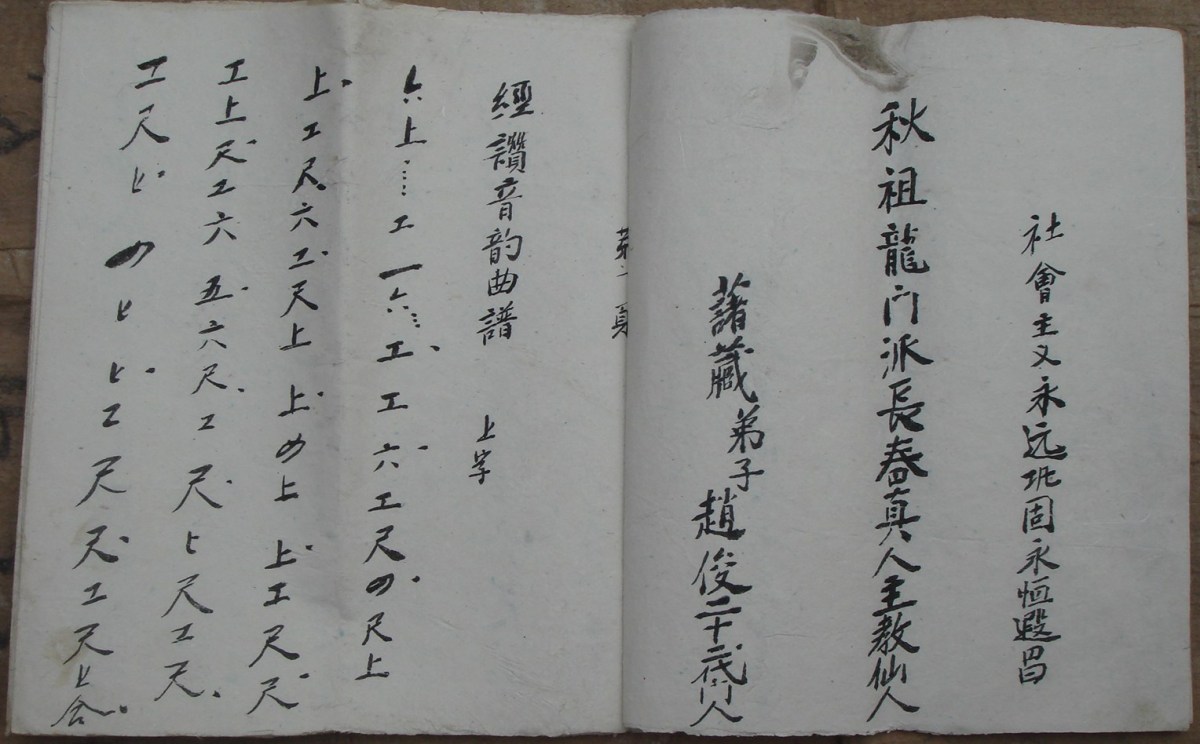 社會主义永远巩固永恒遐昌
秋祖龍门派長春真人主教仙人
諸藏弟子趙俊二十二代门人
第一頁
經讚音韵曲譜 上字
六上工一六工工六工尺の尺上
上工尺六工尺上上の上上工尺尺
工上尺工六五六尺工尺上尺工尺
工尺上の上上工尺尺工尺上合